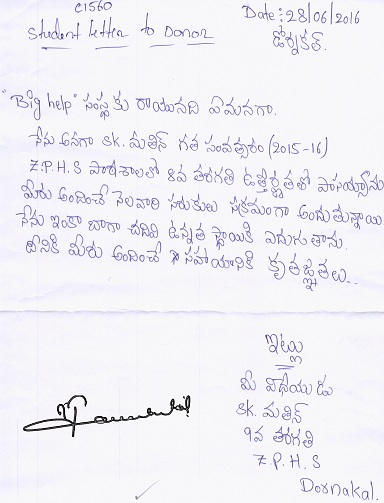 C1560
Student letter to Donor
Date: 28/06/2016
డోర్నకల్.
"Big help" సంస్థకు రాయునది ఏమనగా.
నేను అనగా SK. మతిన్ గత సంవత్సరం (2015-16)
Z.P.H.S పాఠశాలలో 8వ తరగతి ఉత్తీర్ణతతో పాసయ్యాను
మీరు అందించే నెలవారి సరుకులు సక్రమంగా అందుతున్నాయి
నేను ఇంకా బాగా చదివి ఉన్నత స్థాయికి ఎదుగుతాను.
దీనికి మీరు అందించే సహాయానికి కృతజ్ఞతలు..
ఇట్లు
మీ విధేయుడు
SK. మతిన్
9వ తరగతి
Z.P.H.S
Dornakal.